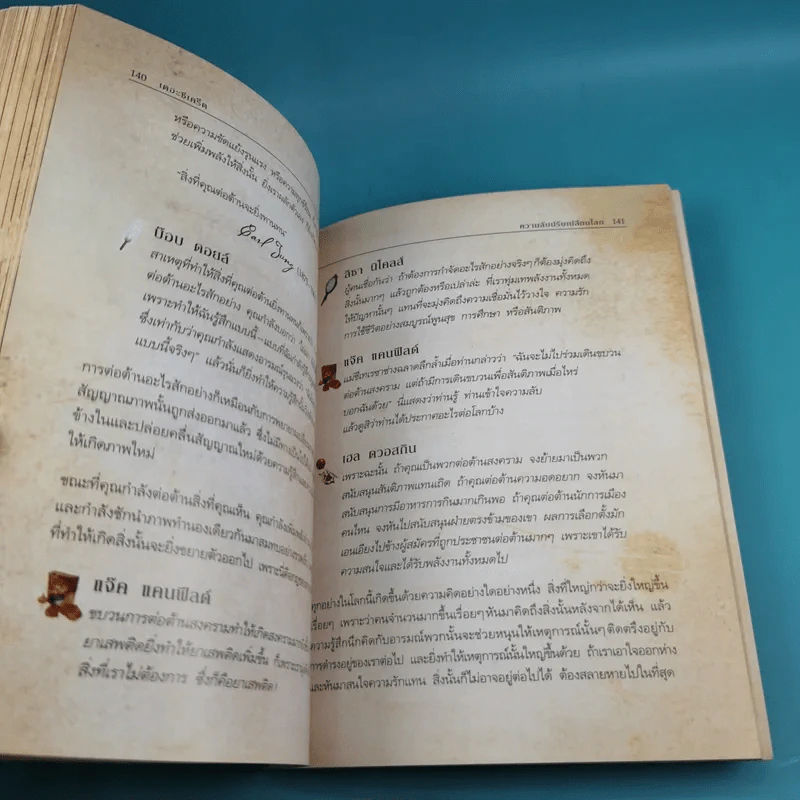 140 เดอะซีเคร็ต
หรือความขัดแย้งรุนแรง
ช่วยเพิ่มพลังให้สิ่งนั้น
"สิ่งที่คุณต่อต้านจะยิ่งทานทน"
Carl Jung
บ๊อบ ดอยล์
สาเหตุที่ทำให้สิ่งที่คุณต่อต้านยิ่งทานทน
ต่อต้านอะไรสักอย่าง คุณกำลังบอกว่า
เพราะทำให้ฉันรู้สึกแบบนี้—แบบที่ฉันกำลังรู้สึก
ซึ่งเท่ากับว่าคุณกำลังแสดงอารมณ์รุนแรง
แบบนี้จริงๆ" แล้วนั่นก็ยิ่งทำให้ความรู้สึกนั้น
การต่อต้านอะไรสักอย่างก็เหมือนกับการพยายาม
สัญญาณภาพนั้นถูกส่งออกมาแล้ว ซึ่งไม่มีทาง
ข้างในและปล่อยคลื่นสัญญาณใหม่ด้วยความรู้สึก
ให้เกิดภาพใหม่
ขณะที่คุณกำลังต่อต้านสิ่งที่คุณเห็น คุณกำลังเพิ่มพลัง
และกำลังชักนำภาพทำนองเดียวกันมาสมทบอย่าง
ที่ทำให้เกิดสิ่งนั้นจะยิ่งขยายตัวออกไป เพราะนี่คือกฎของ
แจ๊ค แคนฟิลด์
ขบวนการต่อต้านสงครามทำให้เกิดสงครามมากขึ้น
ยาเสพติดยิ่งทำให้ยาเสพติดเพิ่มขึ้น ก็เพราะเรามุ่ง
สิ่งที่เราไม่ต้องการ ซึ่งก็คือยาเสพติด!
ความลับปรับเปลี่ยนโลก 141
ลิซา นิโคลส์
ผู้คนเชื่อกันว่า ถ้าต้องการกำจัดอะไรสักอย่างจริงๆ ก็ต้องมุ่งคิดถึง
สิ่งนั้นมากๆ แล้วถูกต้องหรือเปล่าล่ะ ที่เราทุ่มเทพลังงานทั้งหมด
ให้ปัญหานั้นๆ แทนที่จะมุ่งคิดถึงความเชื่อมั่นไว้วางใจ ความรัก
การใช้ชีวิตอย่างสมบูรณ์พูนสุข การศึกษา หรือสันติภาพ
แจ๊ค แคนฟิลด์
แม่ชีเทเรซาช่างฉลาดลึกล้ำเมื่อท่านกล่าวว่า "ฉันจะไม่ไปร่วมเดินขบวน
ต่อต้านสงคราม แต่ถ้ามีการเดินขบวนเพื่อสันติภาพเมื่อไหร่
บอกฉันด้วย" นี่แสดงว่าท่านรู้ ท่านเข้าใจความลับ
แล้วดูสิว่าท่านได้ประกาศอะไรต่อโลกบ้าง
เฮล ดวอสกิน
เพราะฉะนั้น ถ้าคุณเป็นพวกต่อต้านสงคราม จงย้ายมาเป็นพวก
สนับสนุนสันติภาพแทนเถิด ถ้าคุณต่อต้านความอดอยาก จงหันมา
สนับสนุนการมีอาหารการกินมากเกินพอ ถ้าคุณต่อต้านนักการเมือง
คนไหน จงหันไปสนับสนุนฝ่ายตรงข้ามของเขา ผลการเลือกตั้งมัก
เอนเอียงไปข้างผู้สมัครที่ถูกประชาชนต่อต้านมากๆ เพราะเขาได้รับ
ความสนใจและได้รับพลังงานทั้งหมดไป
ทุกอย่างในโลกนี้เกิดขึ้นด้วยความคิดอย่างใดอย่างหนึ่ง สิ่งที่ใหญ่กว่าจะยิ่งใหญ่ขึ้น
เรื่อยๆ เพราะว่าคนจำนวนมากขึ้นเรื่อยๆ หันมาคิดถึงสิ่งนั้นหลังจากได้เห็น แล้ว
ความรู้สึกนึกคิดกับอารมณ์พวกนั้นจะช่วยหนุนให้เหตุการณ์นั้นๆ ติดตรึงอยู่กับ
การดำรงอยู่ของเราต่อไป และยิ่งทำให้เหตุการณ์นั้นใหญ่ขึ้นด้วย ถ้าเราเอาใจออกห่าง
และหันมาสนใจความรักแทน สิ่งนั้นก็ไม่อาจอยู่ต่อไปได้ ต้องสลายหายไปในที่สุด